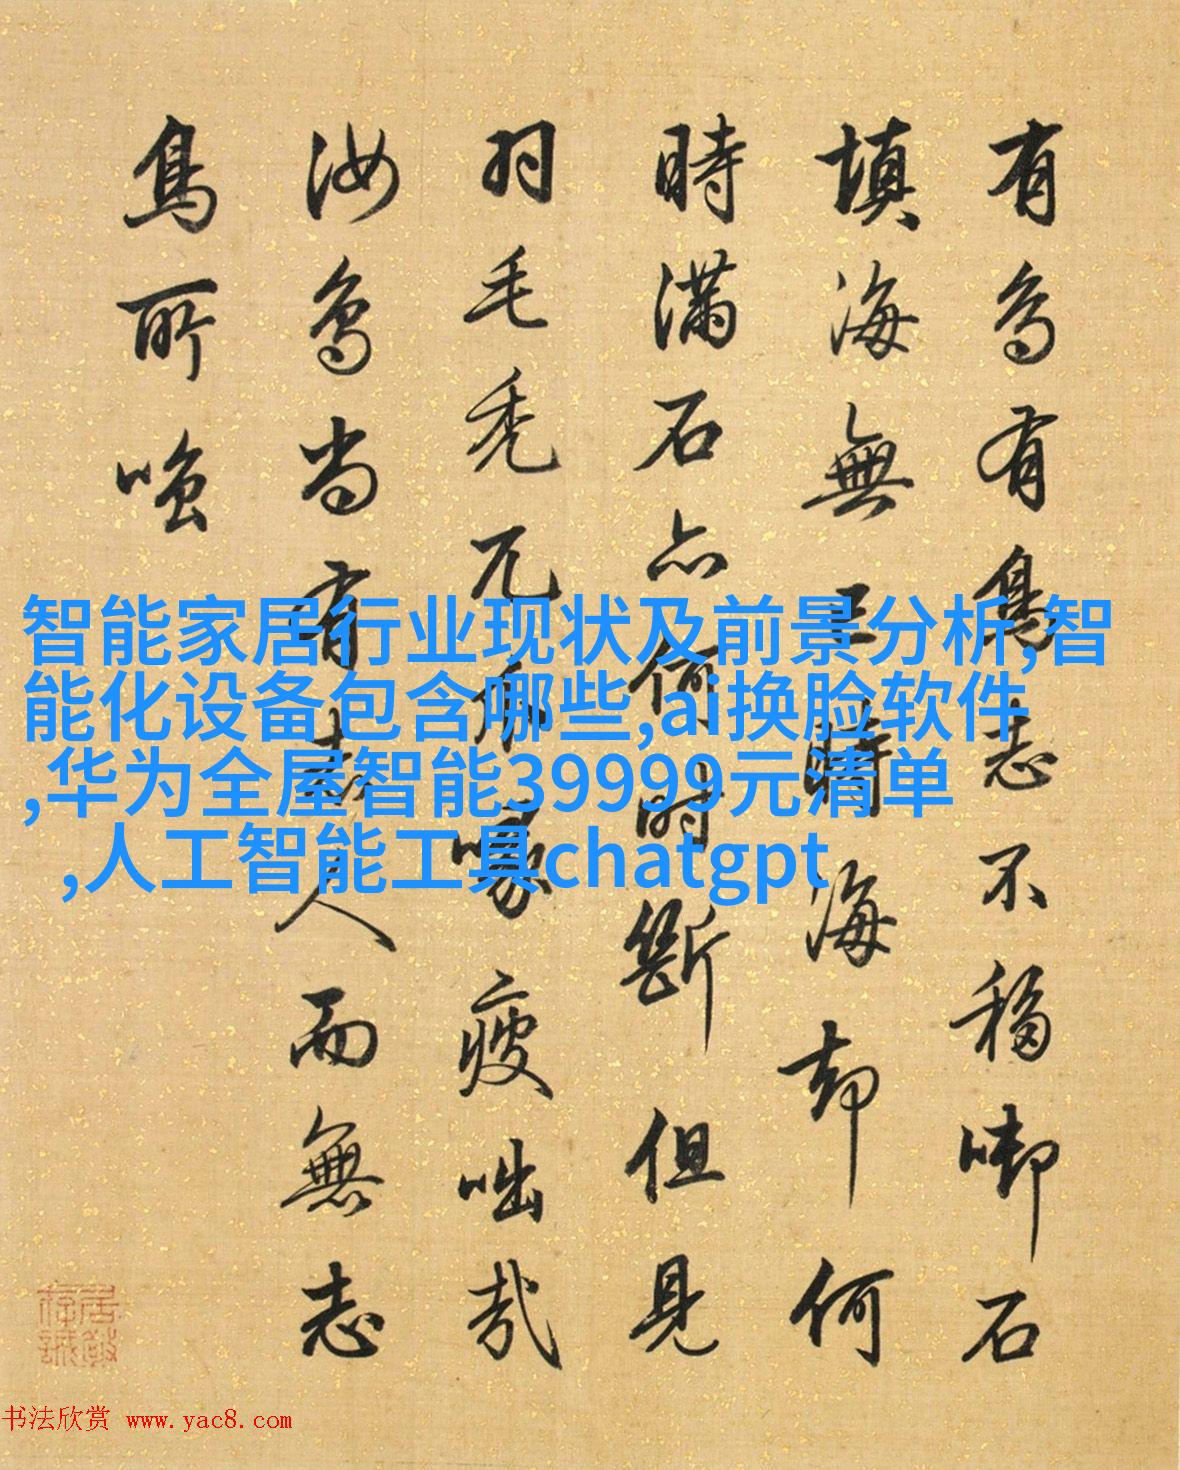 有鳥有鳥志不移啣石
填海無已時海却何
時滿石亦何时斷但見
羽毛禿兀喙疲咄哉
汝鳥尚有志人而無志
鳥所嗤
智能家居行业现状及前景分析,智
能化设备包含哪些,ai换脸软件
,华为全屋智能39999元清单
,人工智能工具chatgpt
居敬
存誠
书法欣赏 www.yac8.com